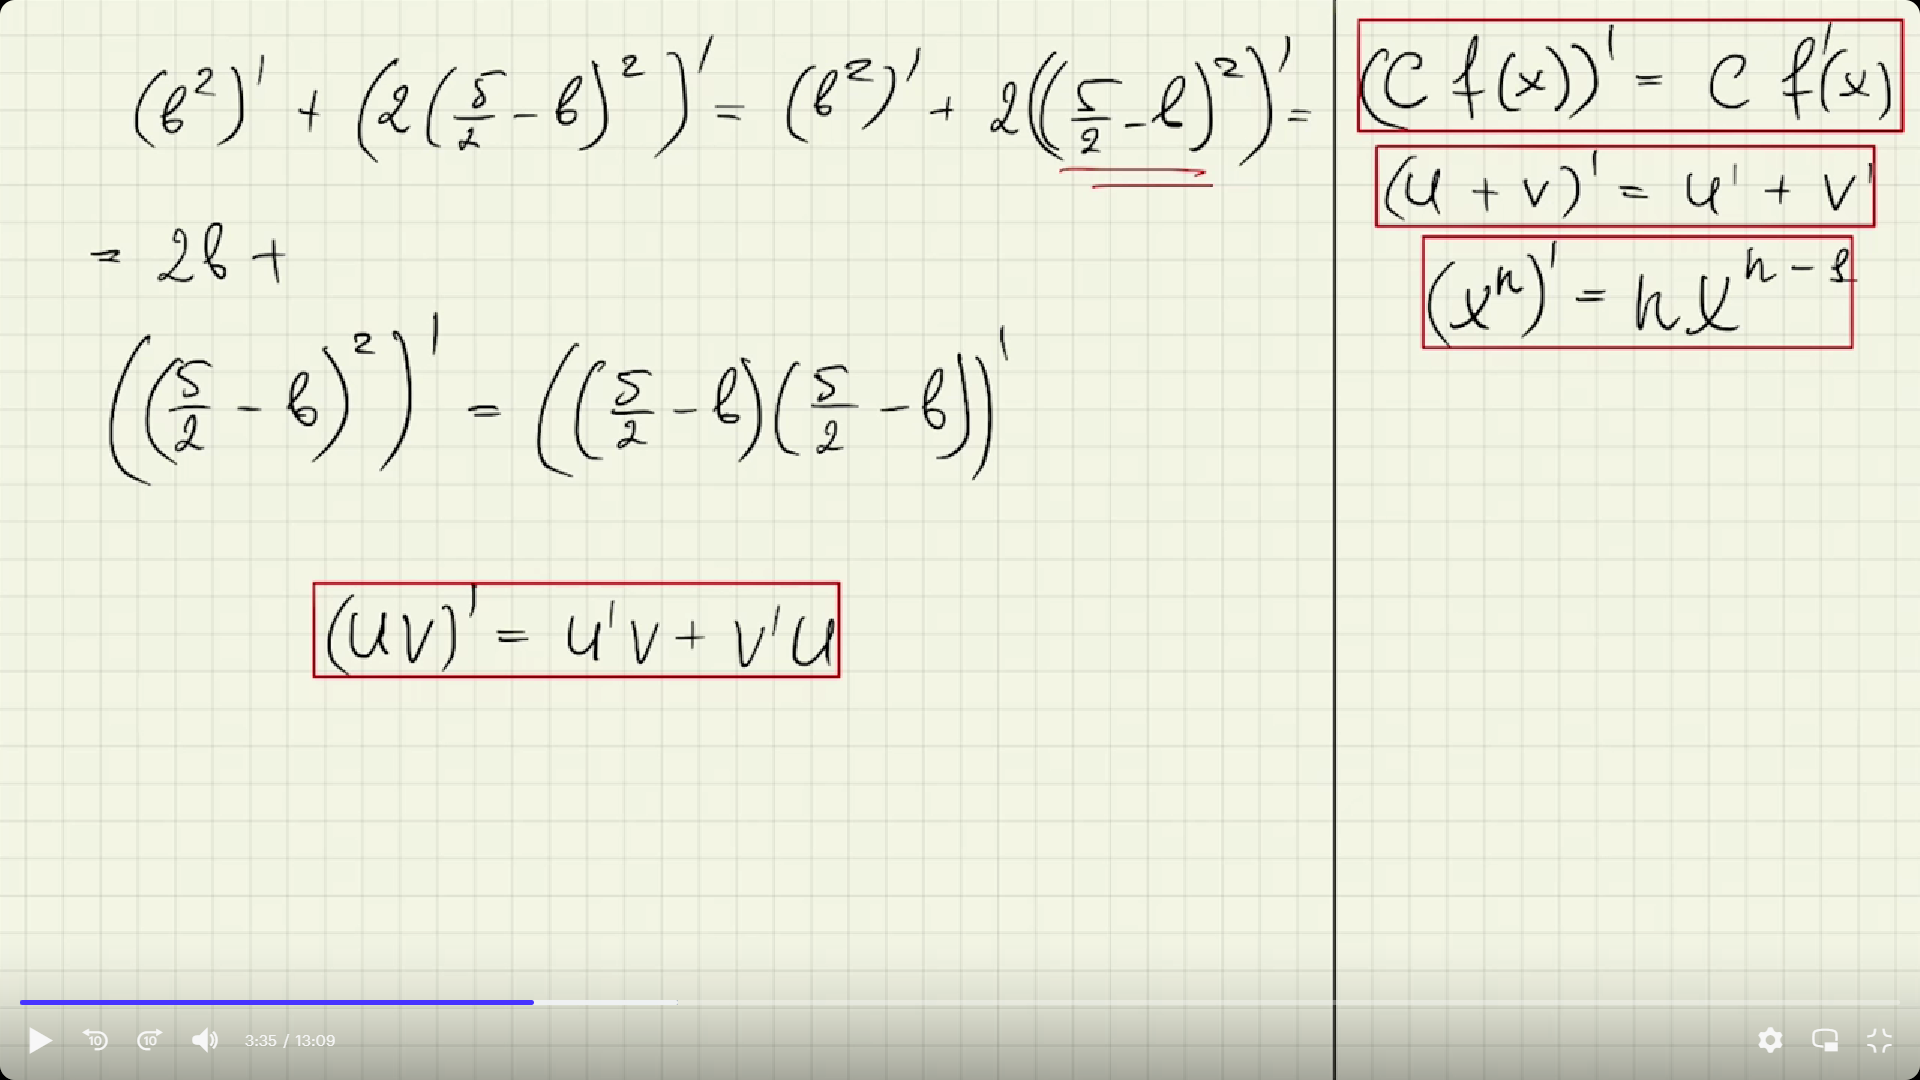 (в²)' + (2(5/2 - в)²)' = (в²)' + 2((5/2 - в)²)' =
= 2в +
((5/2 - в)²)' = ((5/2 - в)(5/2 - в))'
(uv)' = u'v + v'u
(C f(x))' = C f'(x)
(u + v)' = u' + v'
(xⁿ)' = n xⁿ⁻¹
10 10 3:35 / 13:09